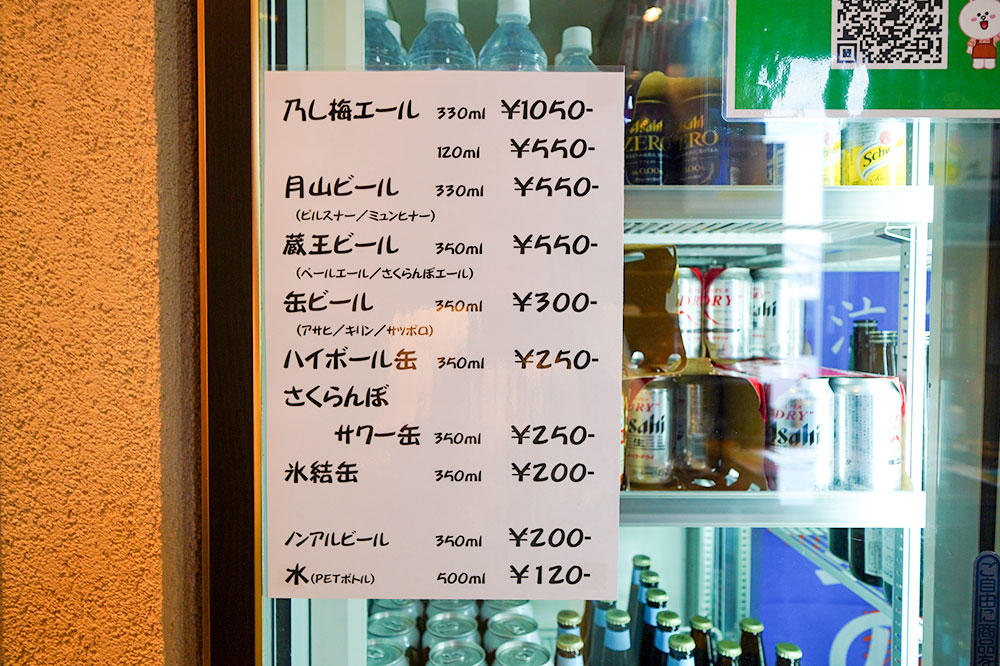 乃し梅エール 330ml ¥1050-
120ml ¥550-
月山ビール 330ml ¥550-
(ピルスナー/ミュンヒナー)
蔵王ビール 350ml ¥550-
(ペールエール/さくらんぼエール)
缶ビール 350ml ¥300-
(アサヒ/キリン/サッポロ)
ハイボール缶 350ml ¥250-
さくらんぼ
サワー缶 350ml ¥250-
氷結缶 350ml ¥200-
ノンアルビール 350ml ¥200-
水(PETボトル) 500ml ¥120-
Asahi
ZERO
0.00
Asahi
ZERO
Schw
DRY
Asahi
DRY
Asahi
DRY
Asahi